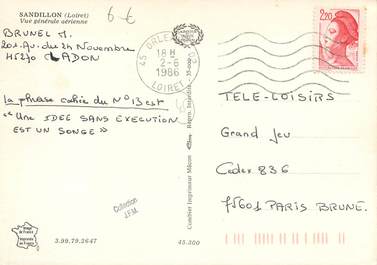 SANDILLON (Loiret)
Vue générale aérienne
6 €
BRUNEL M.
201. Av. du 24 Novembre
45270 LADON
La phrase cachée du N° 13 est
"Une IDEE SANS EXECUTION
EST UN SONGE"
45 ORLEANS
18 H
2-6
1986
LOIRET
2,20
TELE-LOISIRS
Grand Jeu
Cedex 836
75601 PARIS BRUNE.
Collection
J.F.M.
Combier Imprimeur Mâcon
Régen. Interdite - 35.000
Image de France
Imprimée en France
3.99.79.2647
45.300